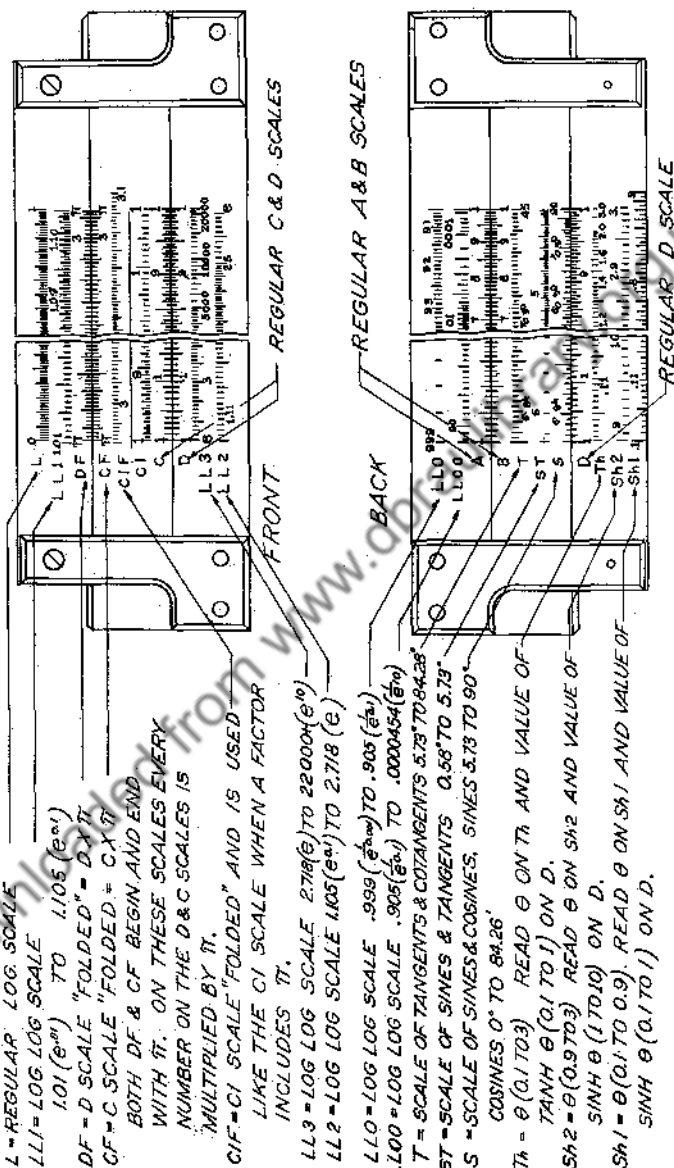 L=REGULAR LOG. SCALE
LL1=LOG LOG SCALE
1.01(e^0.01) TO 1.105(e^0.1)
DF=D SCALE "FOLDED"=D.X π
CF=C SCALE "FOLDED=C.X π
BOTH DF & CF BEGIN AND END
WITH π. ON THESE SCALES EVERY
NUMBER ON THE D&C SCALES IS
MULTIPLIED BY π.
CIF=CI SCALE "FOLDED" AND IS USED
LIKE THE CI SCALE WHEN A FACTOR
INCLUDES π.
LL3=LOG LOG SCALE 2.718(e) TO 22000+(e^10)
LL2=LOG LOG SCALE 1.105(e^0.1) TO 2.718 (e)
LL0=LOG LOG SCALE .999 TO .905
LL00=LOG LOG SCALE .905 TO .0000454
T=SCALE OF TANGENTS & COTANGENTS 5.73° TO 84.28°
ST=SCALE OF SINES & TANGENTS 0.58° TO 5.73°
S=SCALE OF SINES & COSINES, SINES 5.73 TO 90°
COSINES 0° TO 84.26'
Th=θ(0.1 TO 3) READ θ ON Th AND VALUE OF
TANH θ(0.1 TO 1) ON D.
Sh2=θ(0.9 TO 3) READ θ ON Sh2 AND VALUE OF
SINH θ (1 TO 10) ON D.
Sh1=θ(0.1 TO 0.9). READ θ ON Sh1 AND VALUE OF
SINH θ(0.1 TO 1) ON D.
L
LL1 1.01
DF π
CF π
CIF
CI
C
D
LL3
LL2
1.09 1.10
3 π
3 π
3.1
5000 10000 20000
25 e
FRONT
REGULAR C&D SCALES
BACK
REGULAR A&B SCALES
LL0 .999
LL00
A
B
T
ST
S
D
Th
Sh2
Sh1
93 92 91
01 0001
REGULAR D SCALE
Downloaded from www.dbraulibrary.org.in